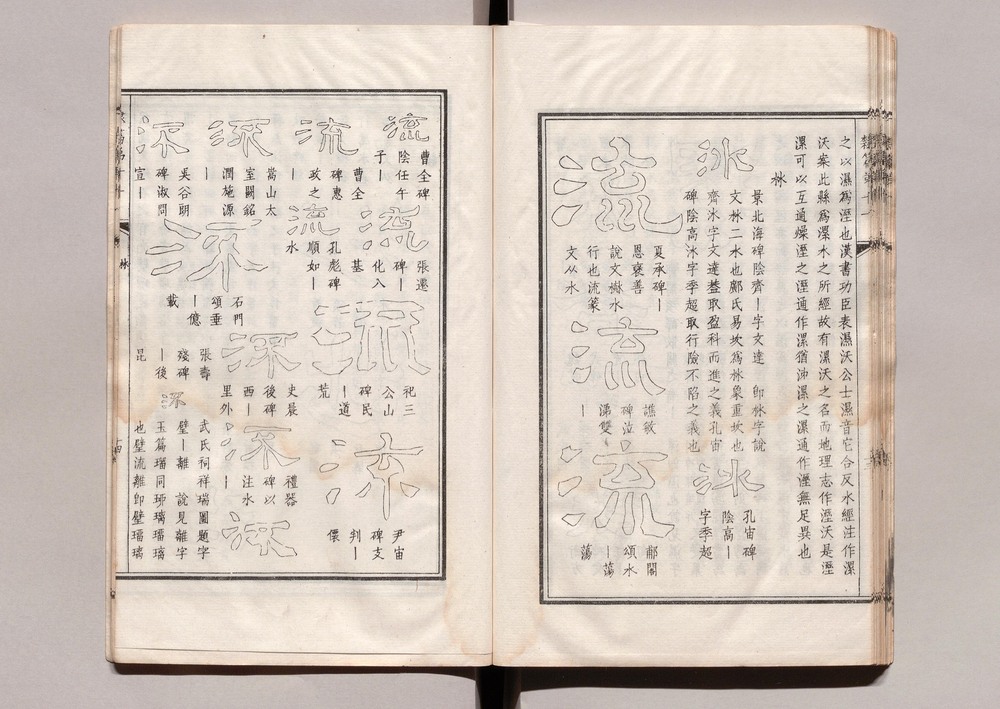 之以濕爲溼也漢書功臣表濕沃公士濕音它合反水經注作漯
沃案此縣爲漯水之所經故有漯沃之名而地理志作溼沃是溼
漯可以互通燥溼之溼通作漯猶沖漯之漯通作溼無足異也
沝
沝
景北海碑陰齊｜字文達　卽沝字說
文沝二水也鄺氏易坎爲沝象重坎也
齊沝字文達葢取盈科而進之義孔宙
碑陰高沝字季超取行險不陷之義也
沝
孔宙碑
陰高｜
字季超
流
夏承碑｜
恩褒善
說文㵉水
行也流篆
文从水
流
譙敏
碑泣
涕雙
｜
流
郙閣
頌水
｜蕩
蕩
流
曹全碑
陰任午
子｜
流
張遷
碑｜
化八
基
流
祀三
公山
碑民
｜道
荒
流
尹宙
碑支
判｜
流
曹全
碑惠
政之
｜
流
孔彪碑
順如｜
水
流
史晨
後碑
西｜
里外
流
禮器
碑以
注水
｜
流
流
嵩山太
室闕銘
潤施源
｜
流
石門
頌垂
｜億
載
流
吳谷朗
碑淑問
宣｜
張壽
殘碑
｜後
昆
流
武氏祠祥瑞圖題字
璧｜離　說見離字
玉篇瑠同琉璃瑠璃
也璧流離卽璧瑠璃
沝